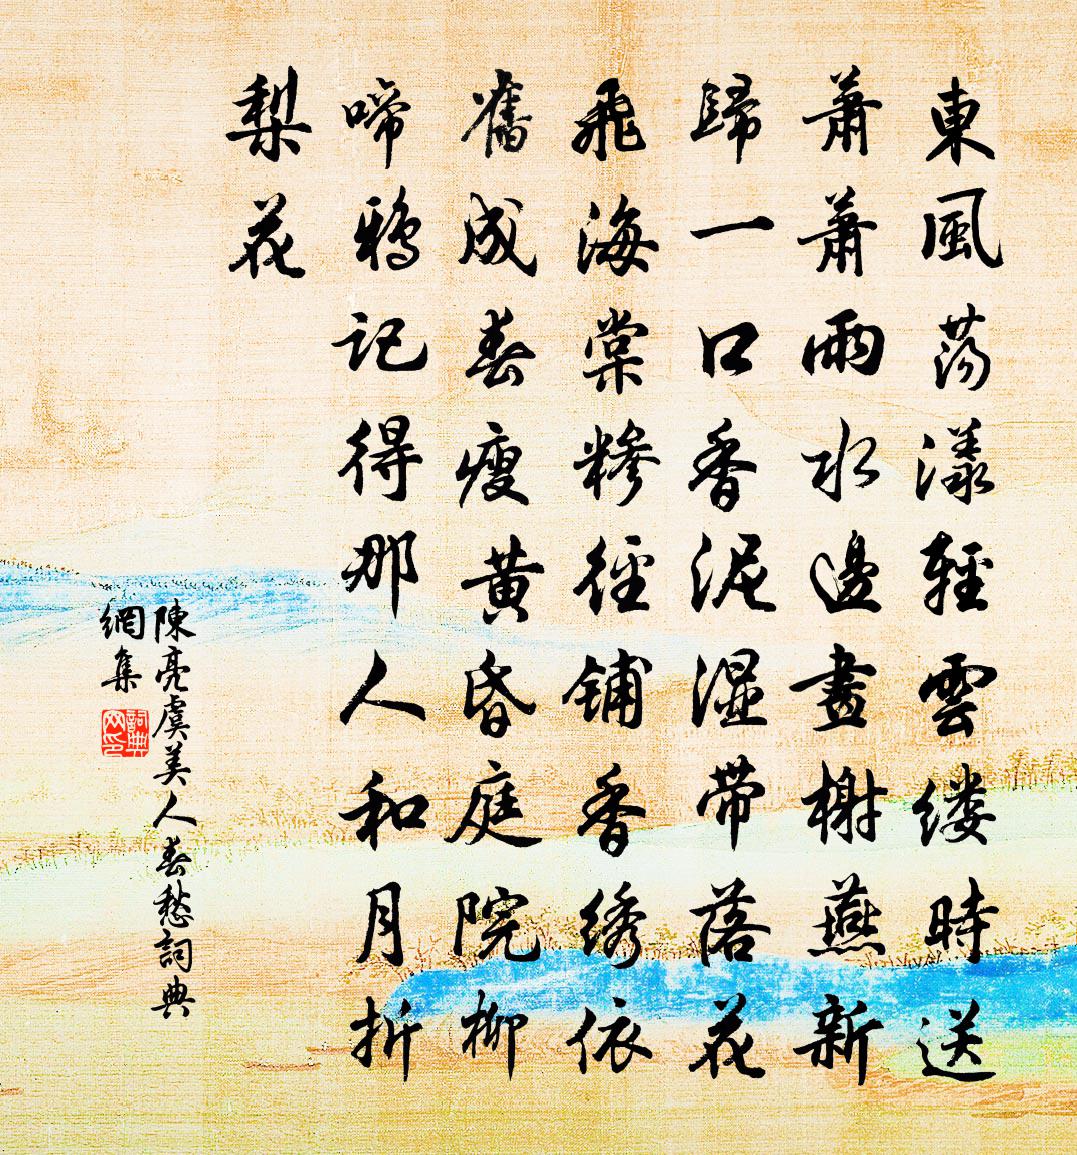 東風荡漾輕雲缕時送
萧萧雨水邊畫榭燕新
歸一口香泥湿带落花
飛海棠糁徑铺香绣依
舊成春瘦黄昏庭院柳
啼鴉记得那人和月折
梨花
陳亮虞美人春愁詞典
網集
詞典